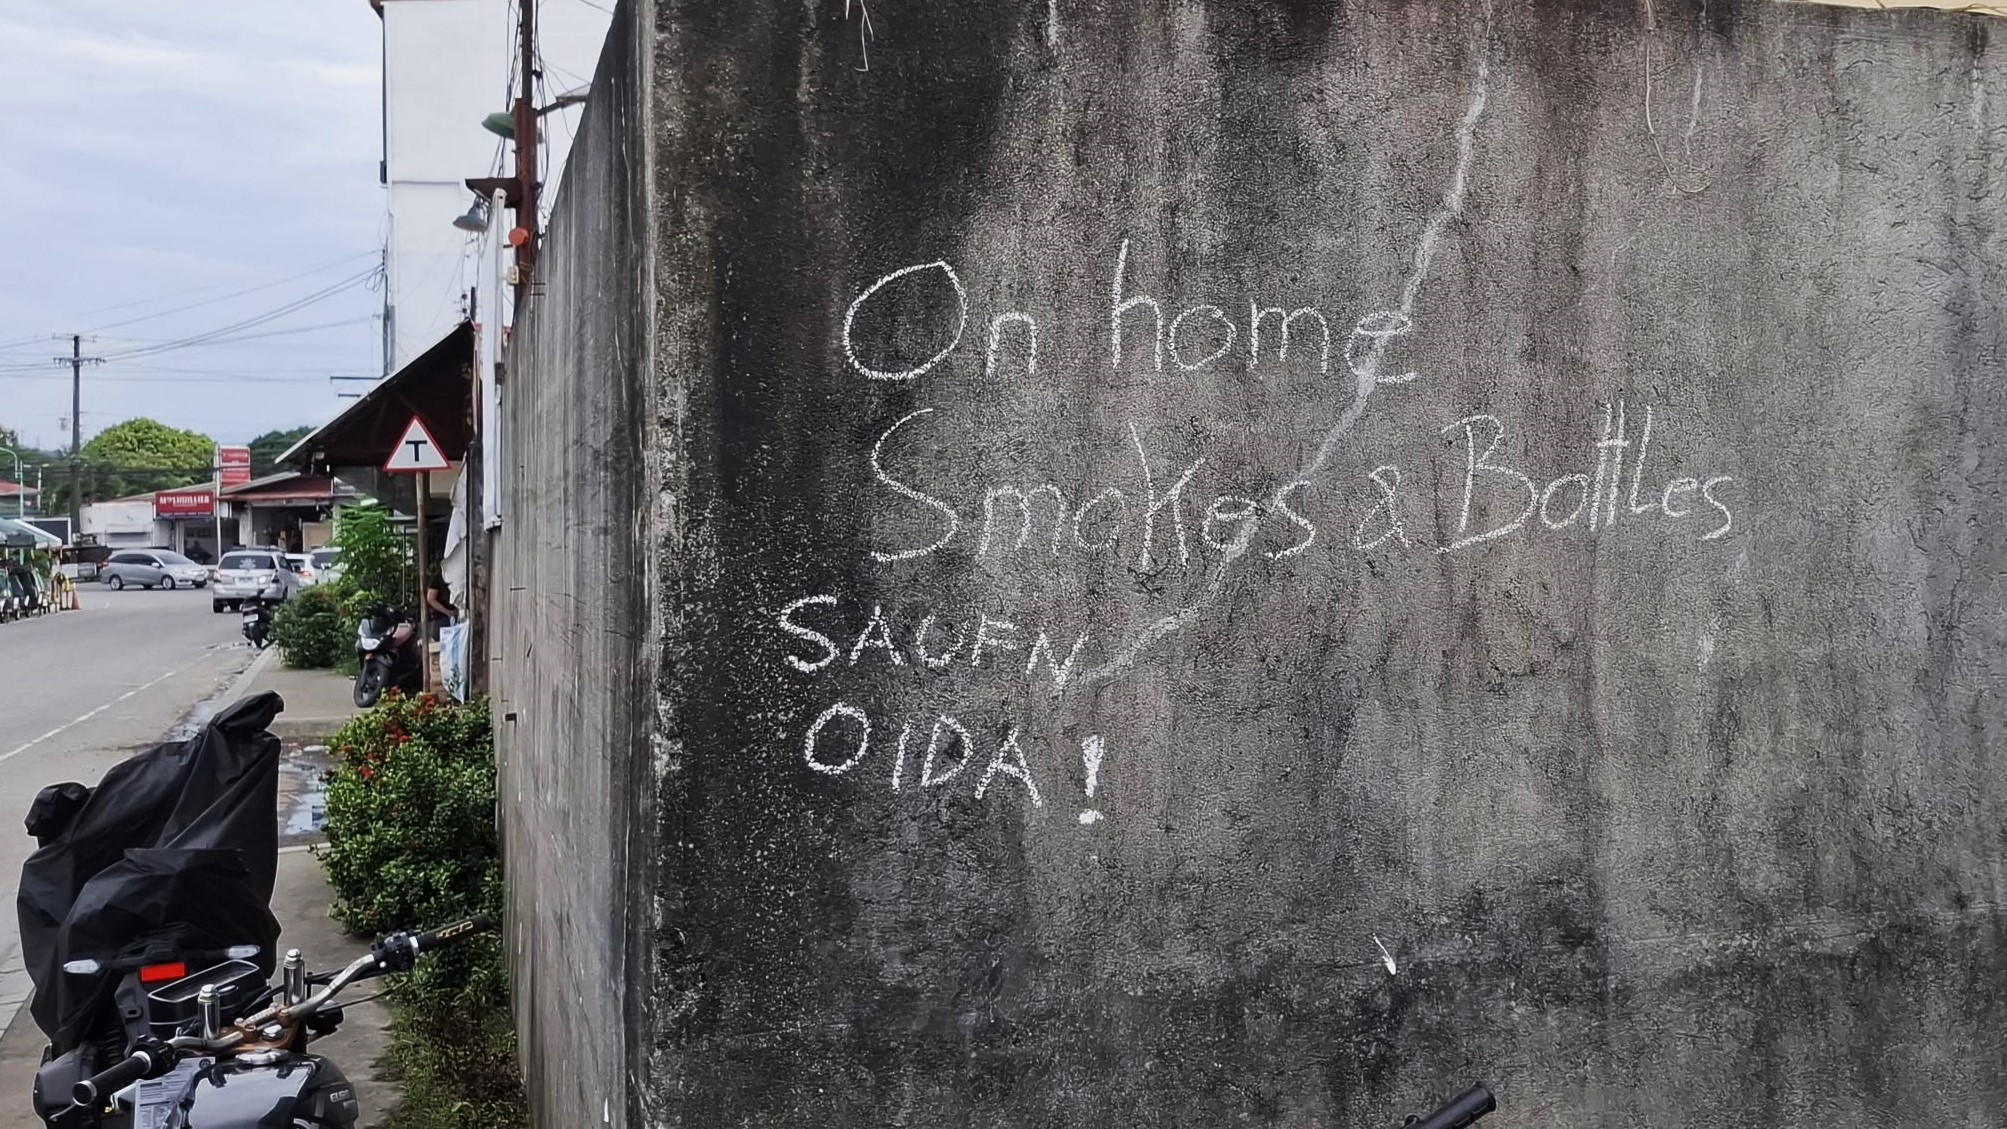 T
On home
Smokes & Bottles
SAUFN
OIDA!